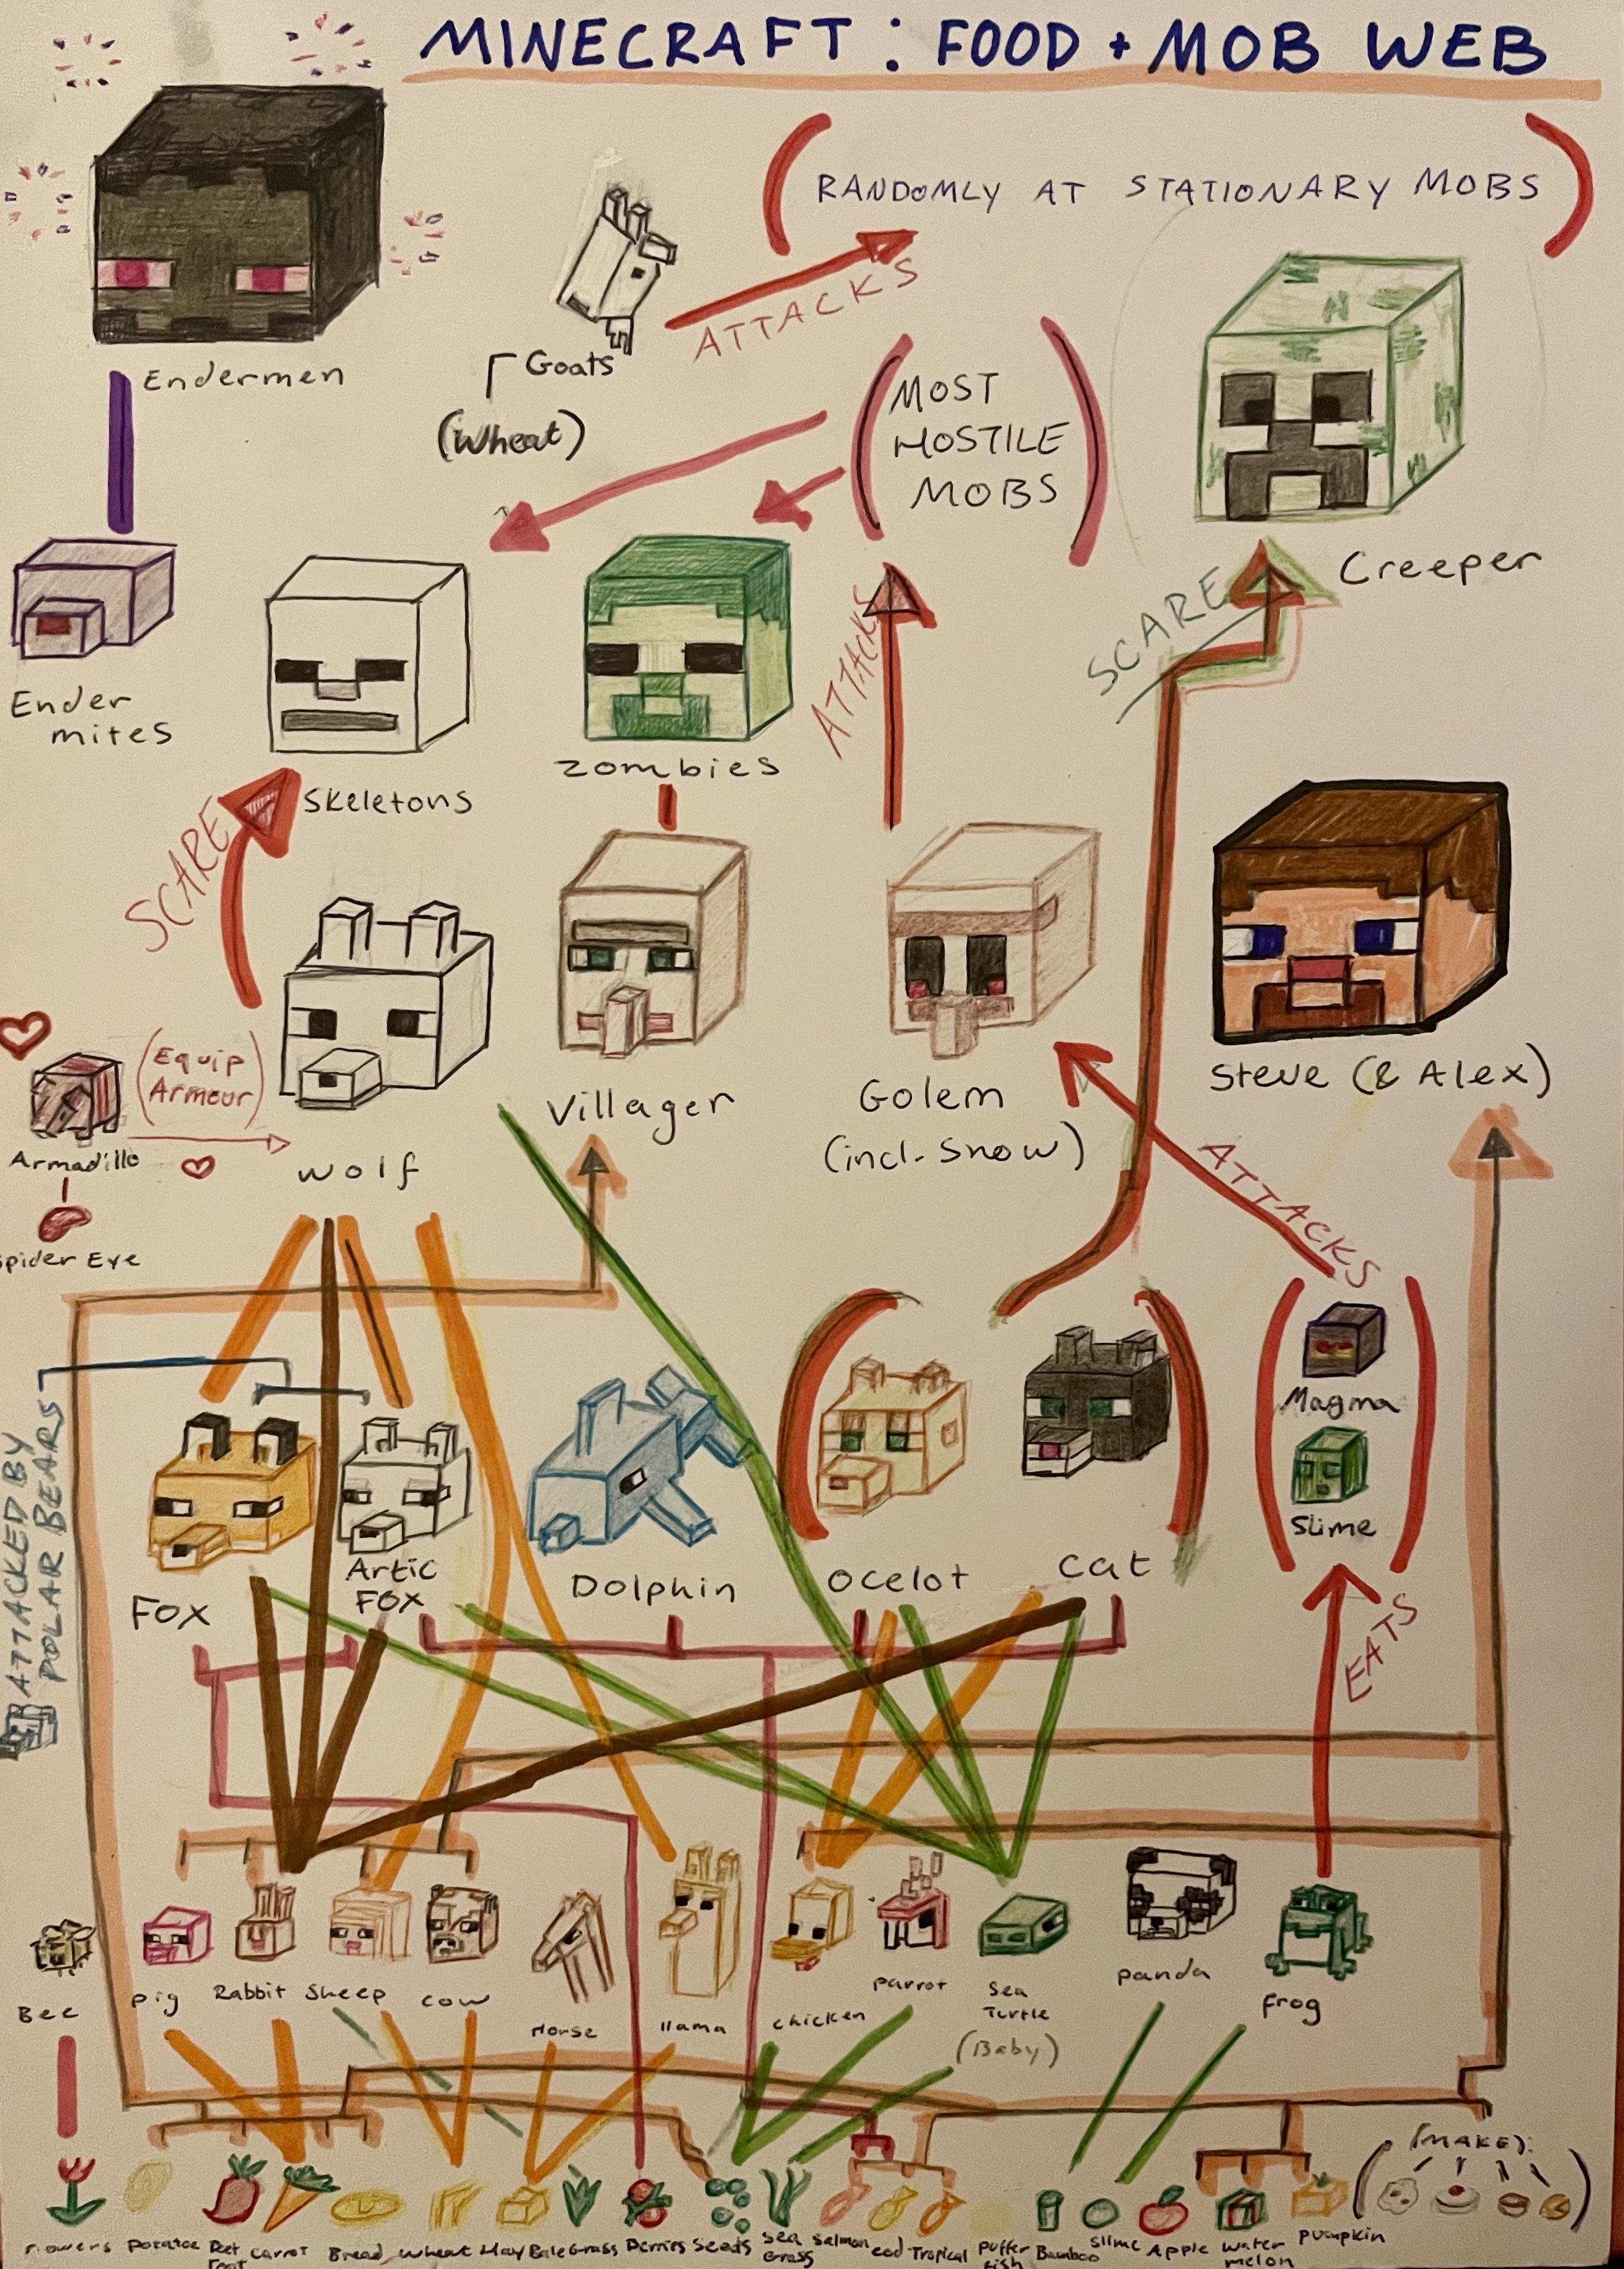 MINECRAFT: FOOD + MOB WEB
(RANDOMLY AT STATIONARY MOBS)
ATTACKS
Goats
(Wheat)
Endermen
(MOST
HOSTILE
MOBS)
Creeper
SCARE
ATTACKS
Ender
mites
Skeletons
Zombies
SCARE
Steve (& Alex)
(Equip
Armour)
Armadillo
Spider Eye
Wolf
Villager
Golem
(incl. Snow)
ATTACKS
Magma
Slime
ATTACKED BY
POLAR BEARS
Fox
Artic
Fox
Dolphin
Ocelot
Cat
EATS
Bee
Pig
Rabbit
Sheep
Cow
Horse
llama
chicken
parrot
Sea
Turtle
(Baby)
panda
Frog
(MAKE):
Flowers
Potatoe
Beet
root
Carrot
Bread
Wheat
Hay Bale
Grass
Berries
Seeds
Sea
Grass
Salmon
cod
Tropical
Puffer
fish
Bamboo
Slime
Apple
Water
melon
Pumpkin